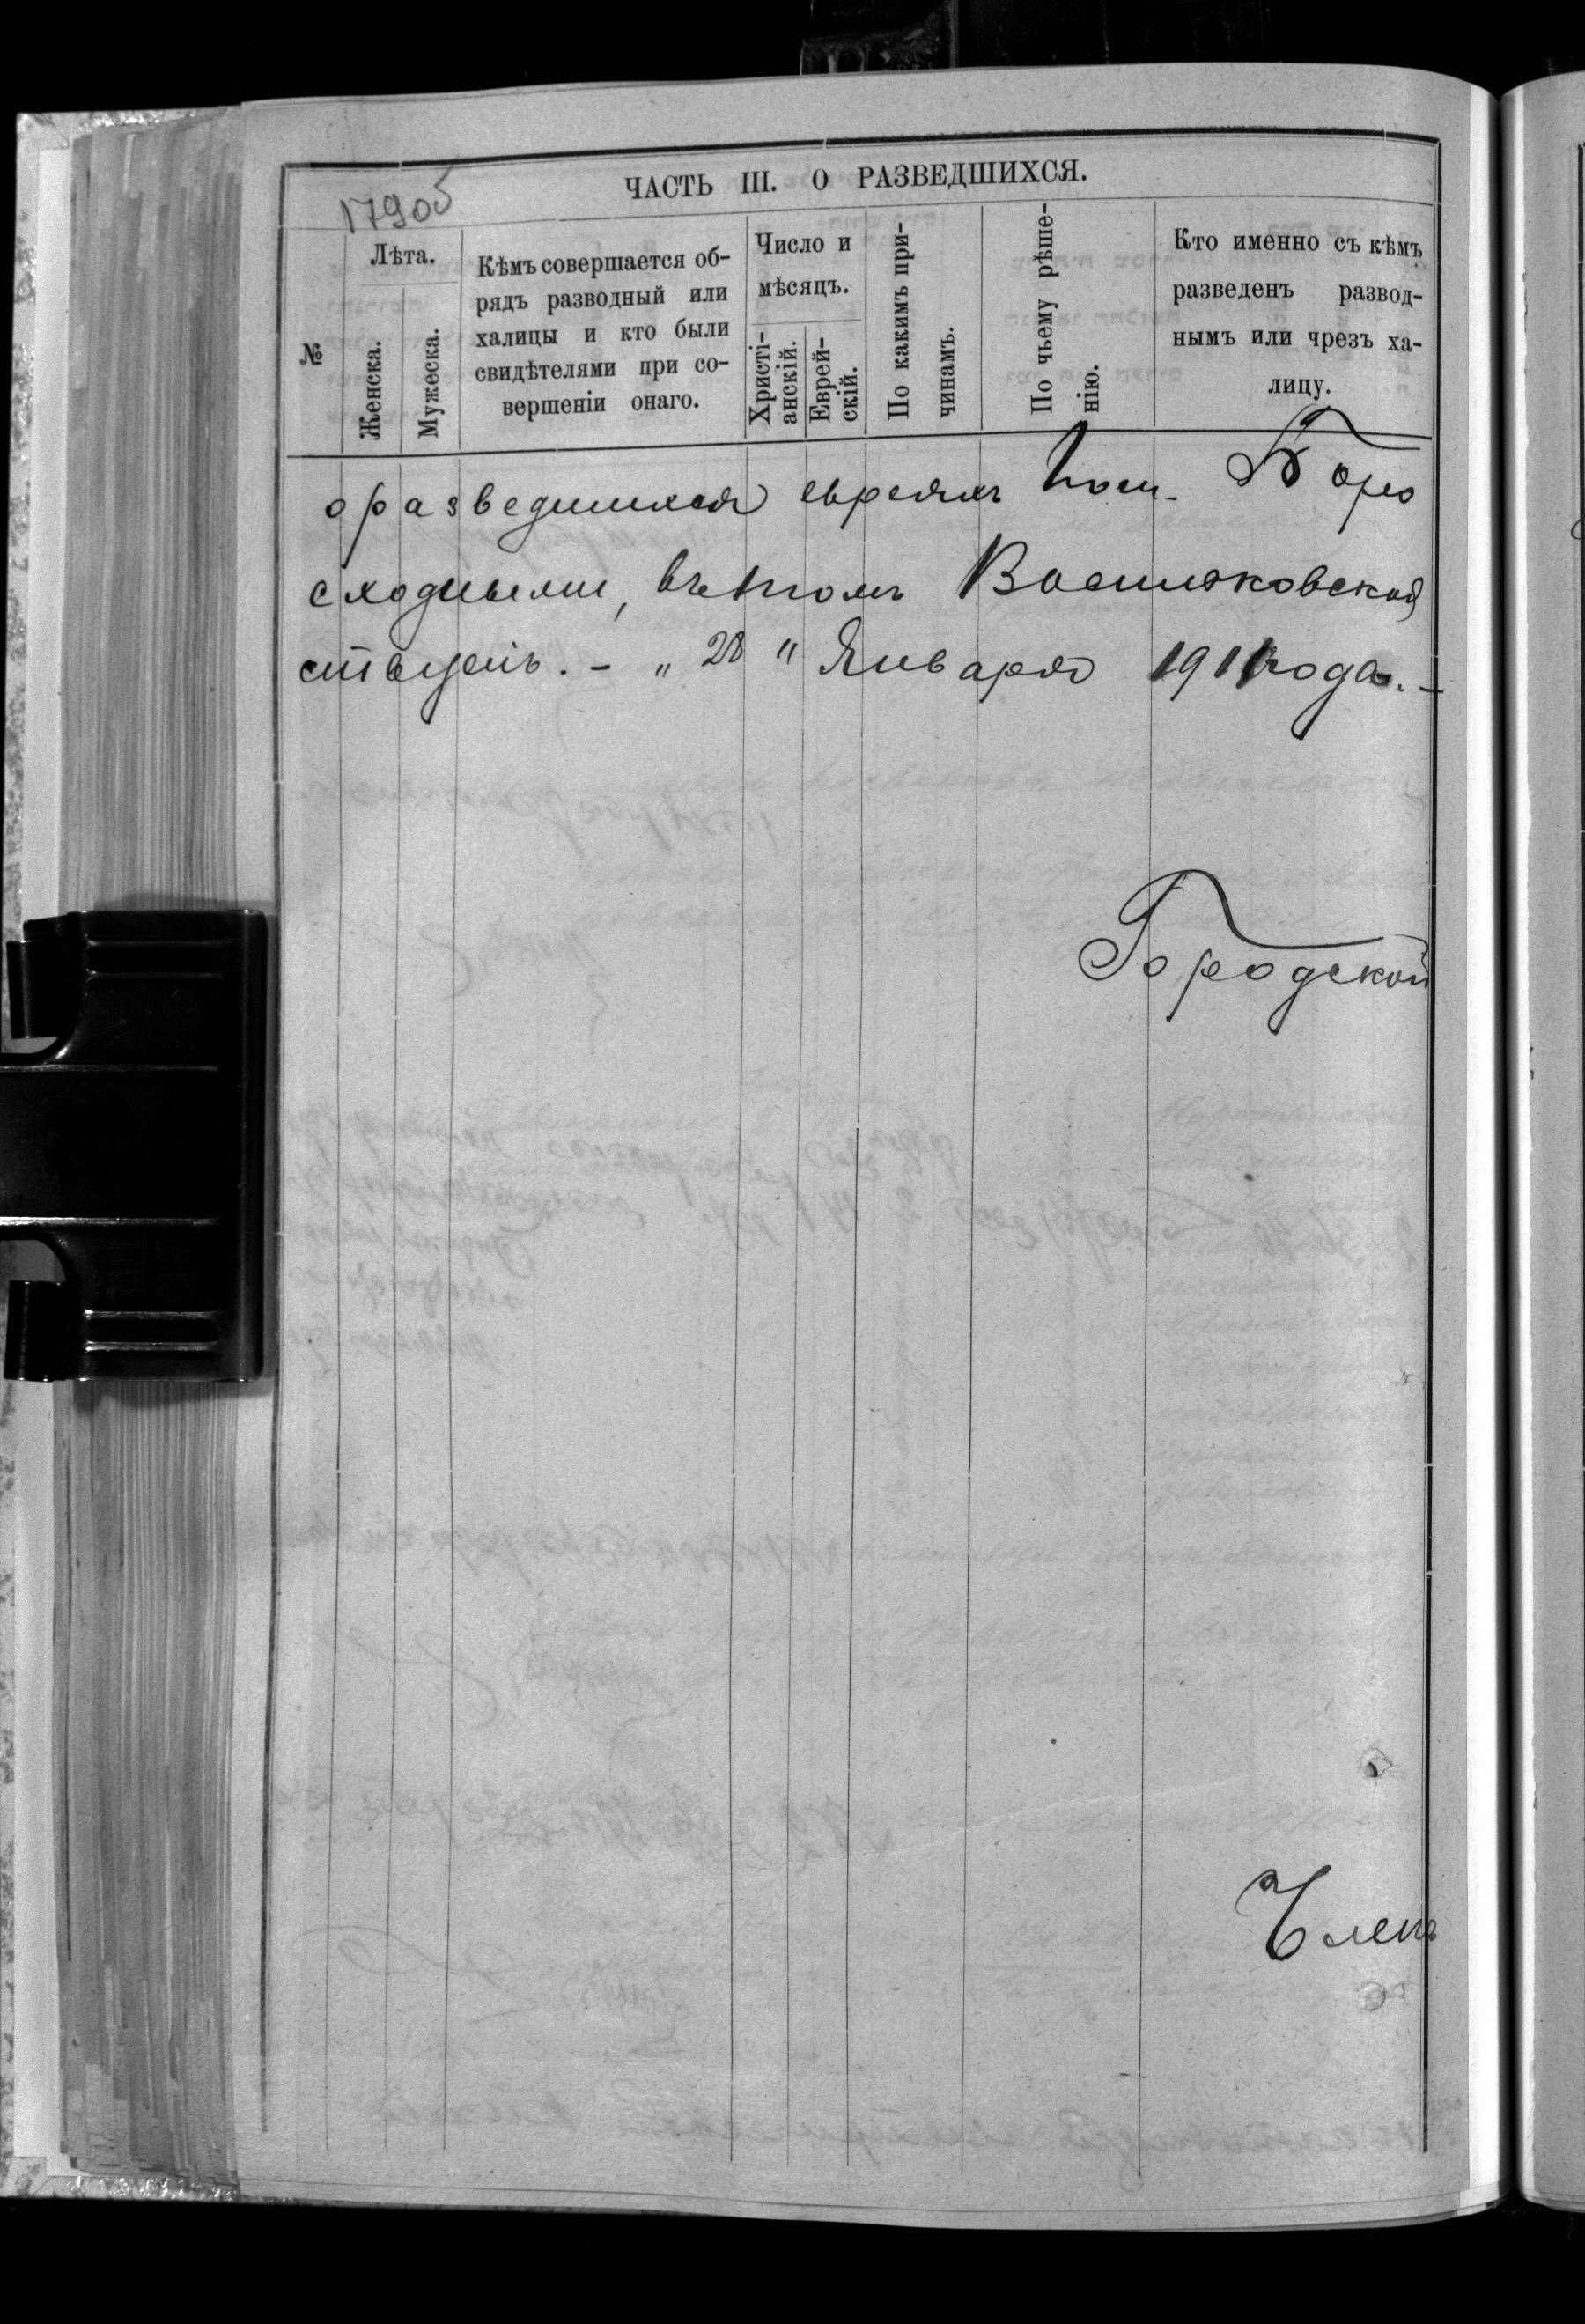 ЧАСТЬ III. О РАЗВЕДШИХСЯ.
1790б
№
Лѣта.
Женска.
Мужеска.
Кѣмъ совершается об-
рядъ разводный или
халицы и кто были
свидѣтелями при со-
вершеніи онаго.
Число и
мѣсяцъ.
Христі-
анскій.
Еврей-
скій.
По какимъ при-
чинамъ.
По чьему рѣше-
нію.
Кто именно съ кѣмъ
разведенъ развод-
нымъ или чрезъ ха-
лицу.
о разведшихся евреяхъ
сходными, въ томъ Васильковская
"28" Января 1911 года. -
Городской
Членъ